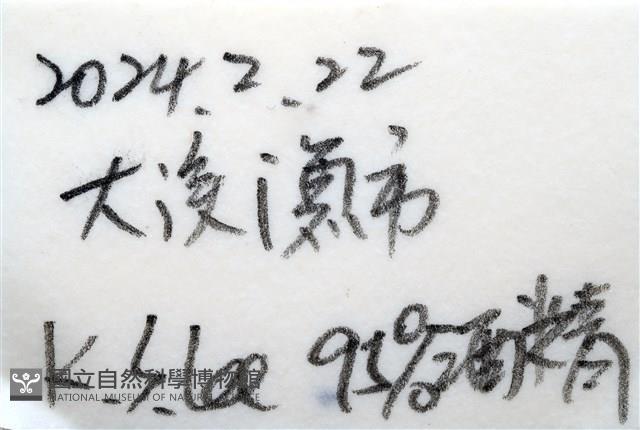 2024.2.22
大溪漁市
K.S.Lee 95%酒精
國立自然科學博物館
NATIONAL MUSEUM OF NATURAL SCIENCE